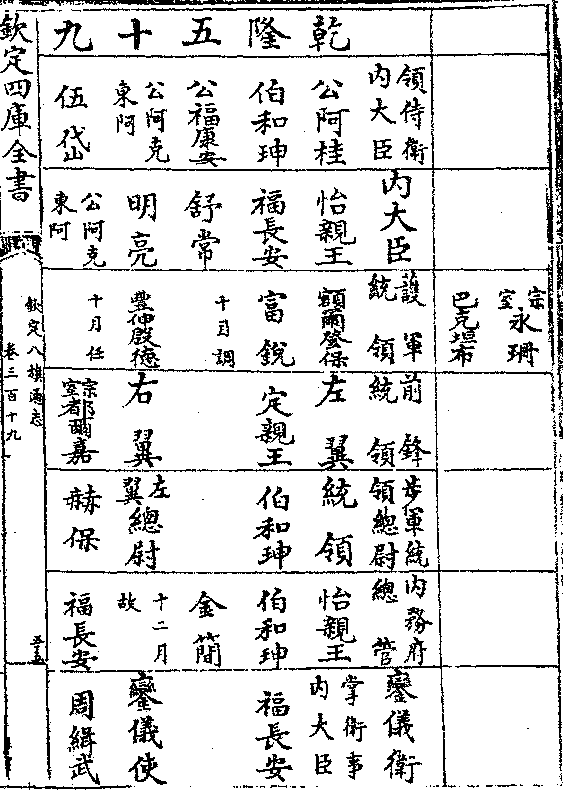 宗室永珊
巴克坦布
乾隆五十九
領侍衛内大臣
公阿桂
伯和珅
公福康安
公阿克東阿
伍岱
内大臣
怡親王
福長安
舒常
明亮
公阿克東阿
護軍統領
額爾登保
富銳
十月調
豐伸殷德
十月任
前鋒統領
左翼
定親王
右翼
宗室都爾嘉
步軍統領總尉
統領
伯和珅
左翼總尉
赫保
内務府總管
怡親王
伯和珅
金簡
十二月故
福長安
鑾儀衛
掌衛事内大臣
福長安
鑾儀使
周緝武
欽定四庫全書
欽定八旗通志
卷三百十九